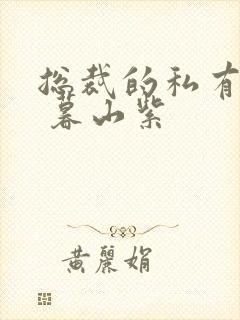 总裁的私有
暮山紫
黄丽娟